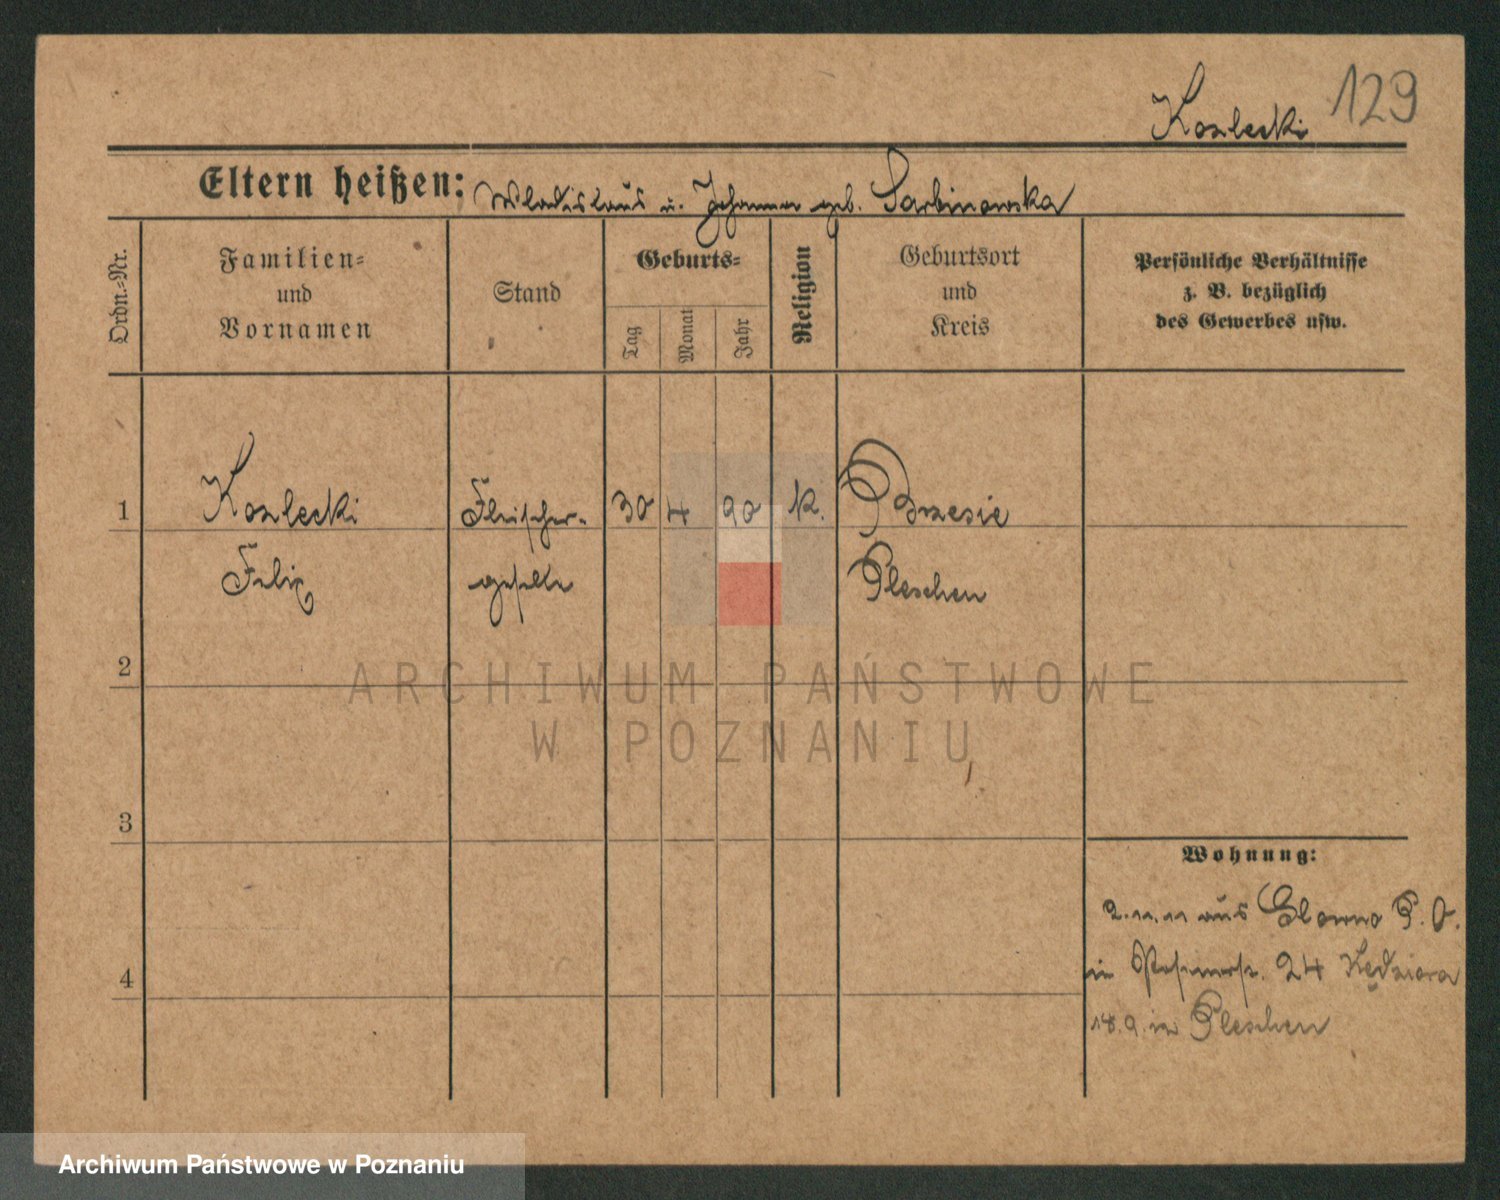 Kozlecki 129
Eltern heißen: Wladislaus u. Johanna geb. Sarbinowska
Ordn.-Nr.
Familien-
und
Vornamen
Stand
Geburts-
Tag
Monat
Jahr
Religion
Geburtsort
und
Kreis
Persönliche Verhältnisse
z. B. bezüglich
des Gewerbes usw.
1 Kozlecki Fleischer- 30 4 90 k. Brzesie
Felix geselle Pleschen
2
ARCHIWUM PAŃSTWOWE
W POZNANIU
3
Wohnung:
2.11.11 aus Glowno P. O.
in 24 Kędziora
4
18.9. in Pleschen
Archiwum Państwowe w Poznaniu